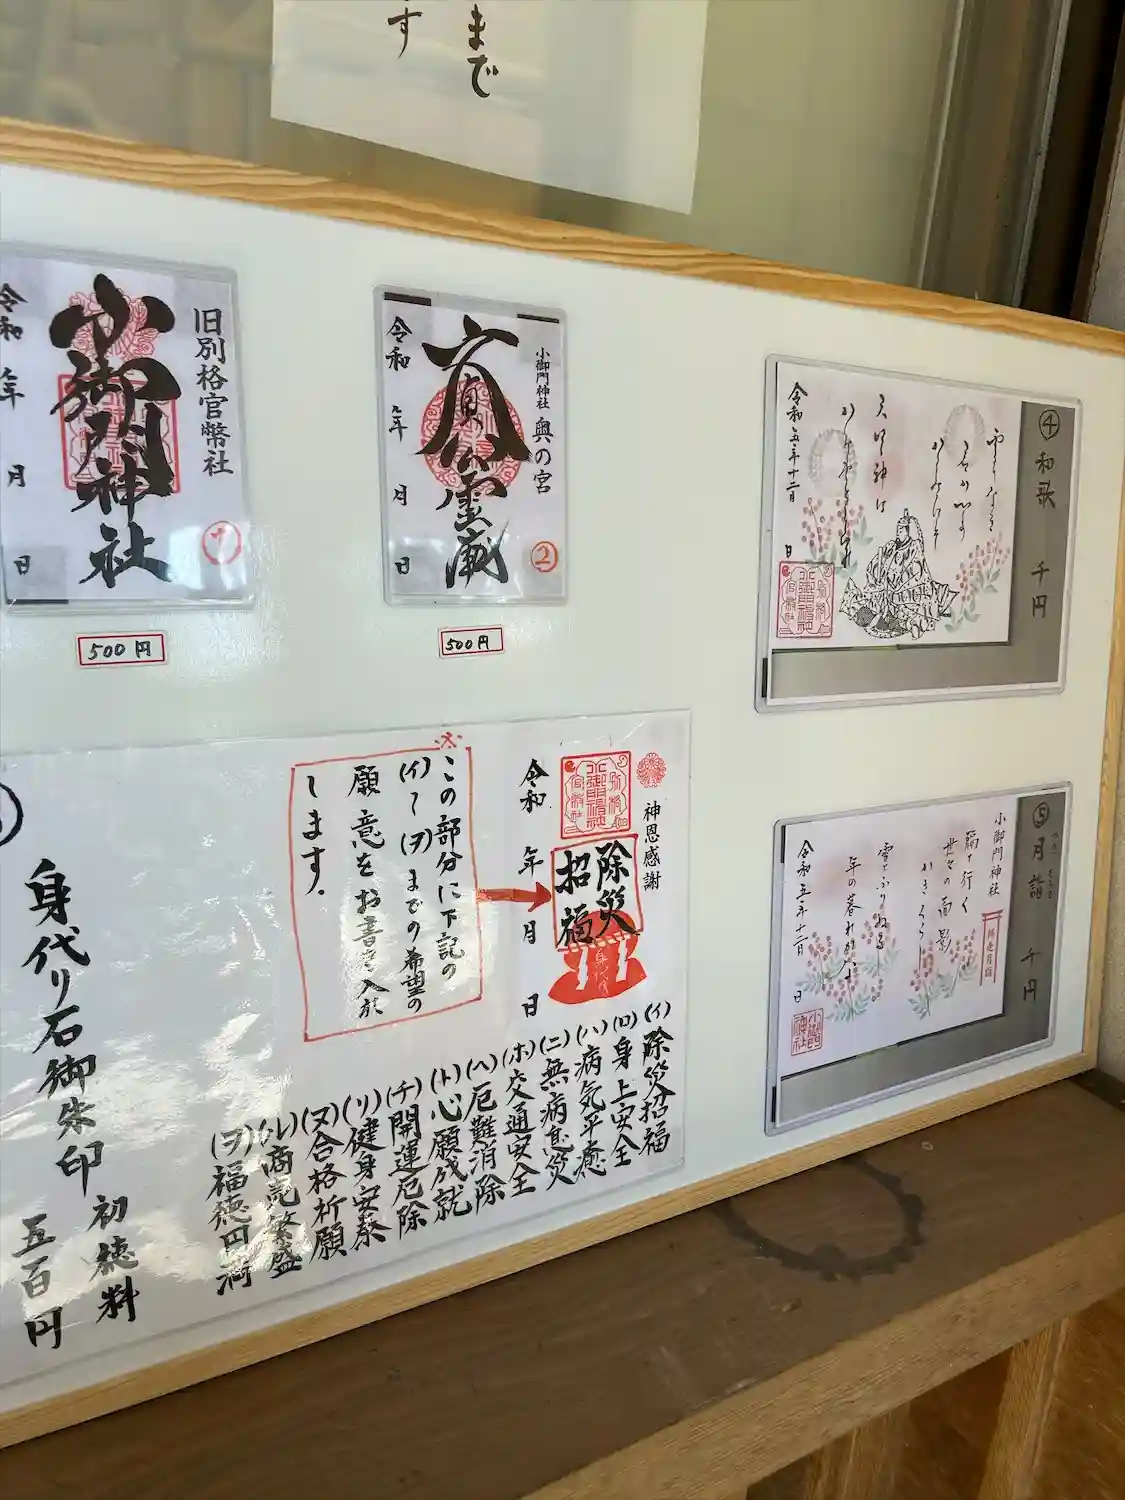 まで
す
旧別格官幣社
小御門神社
令和
年
月
日
1
500円
小御門神社 奥の宮
文貞公霊蔵
令和
年
月
日
②
500円
④和歌 千円
令和五年十二月
日
⑤月詣 千円
小御門神社
師走月詣
年の暮れかな
令和五年十二月
日
小御門神社
神恩感謝
除災
招福
身代り石
令和
年
月
日
※
この部分に下記の
(イ)~(ヲ)までの希望の
願意をお書き入れ
します。
(イ)除災招福
(ロ)身上安全
(ハ)病気平癒
(ニ)無病息災
(ホ)交通安全
(ヘ)厄難消除
(ト)心願成就
(チ)開運厄除
(リ)健身安泰
(ヌ)合格祈願
(ル)商売繁盛
(ヲ)福徳円満
身代り石御朱印
初穂料
五百円